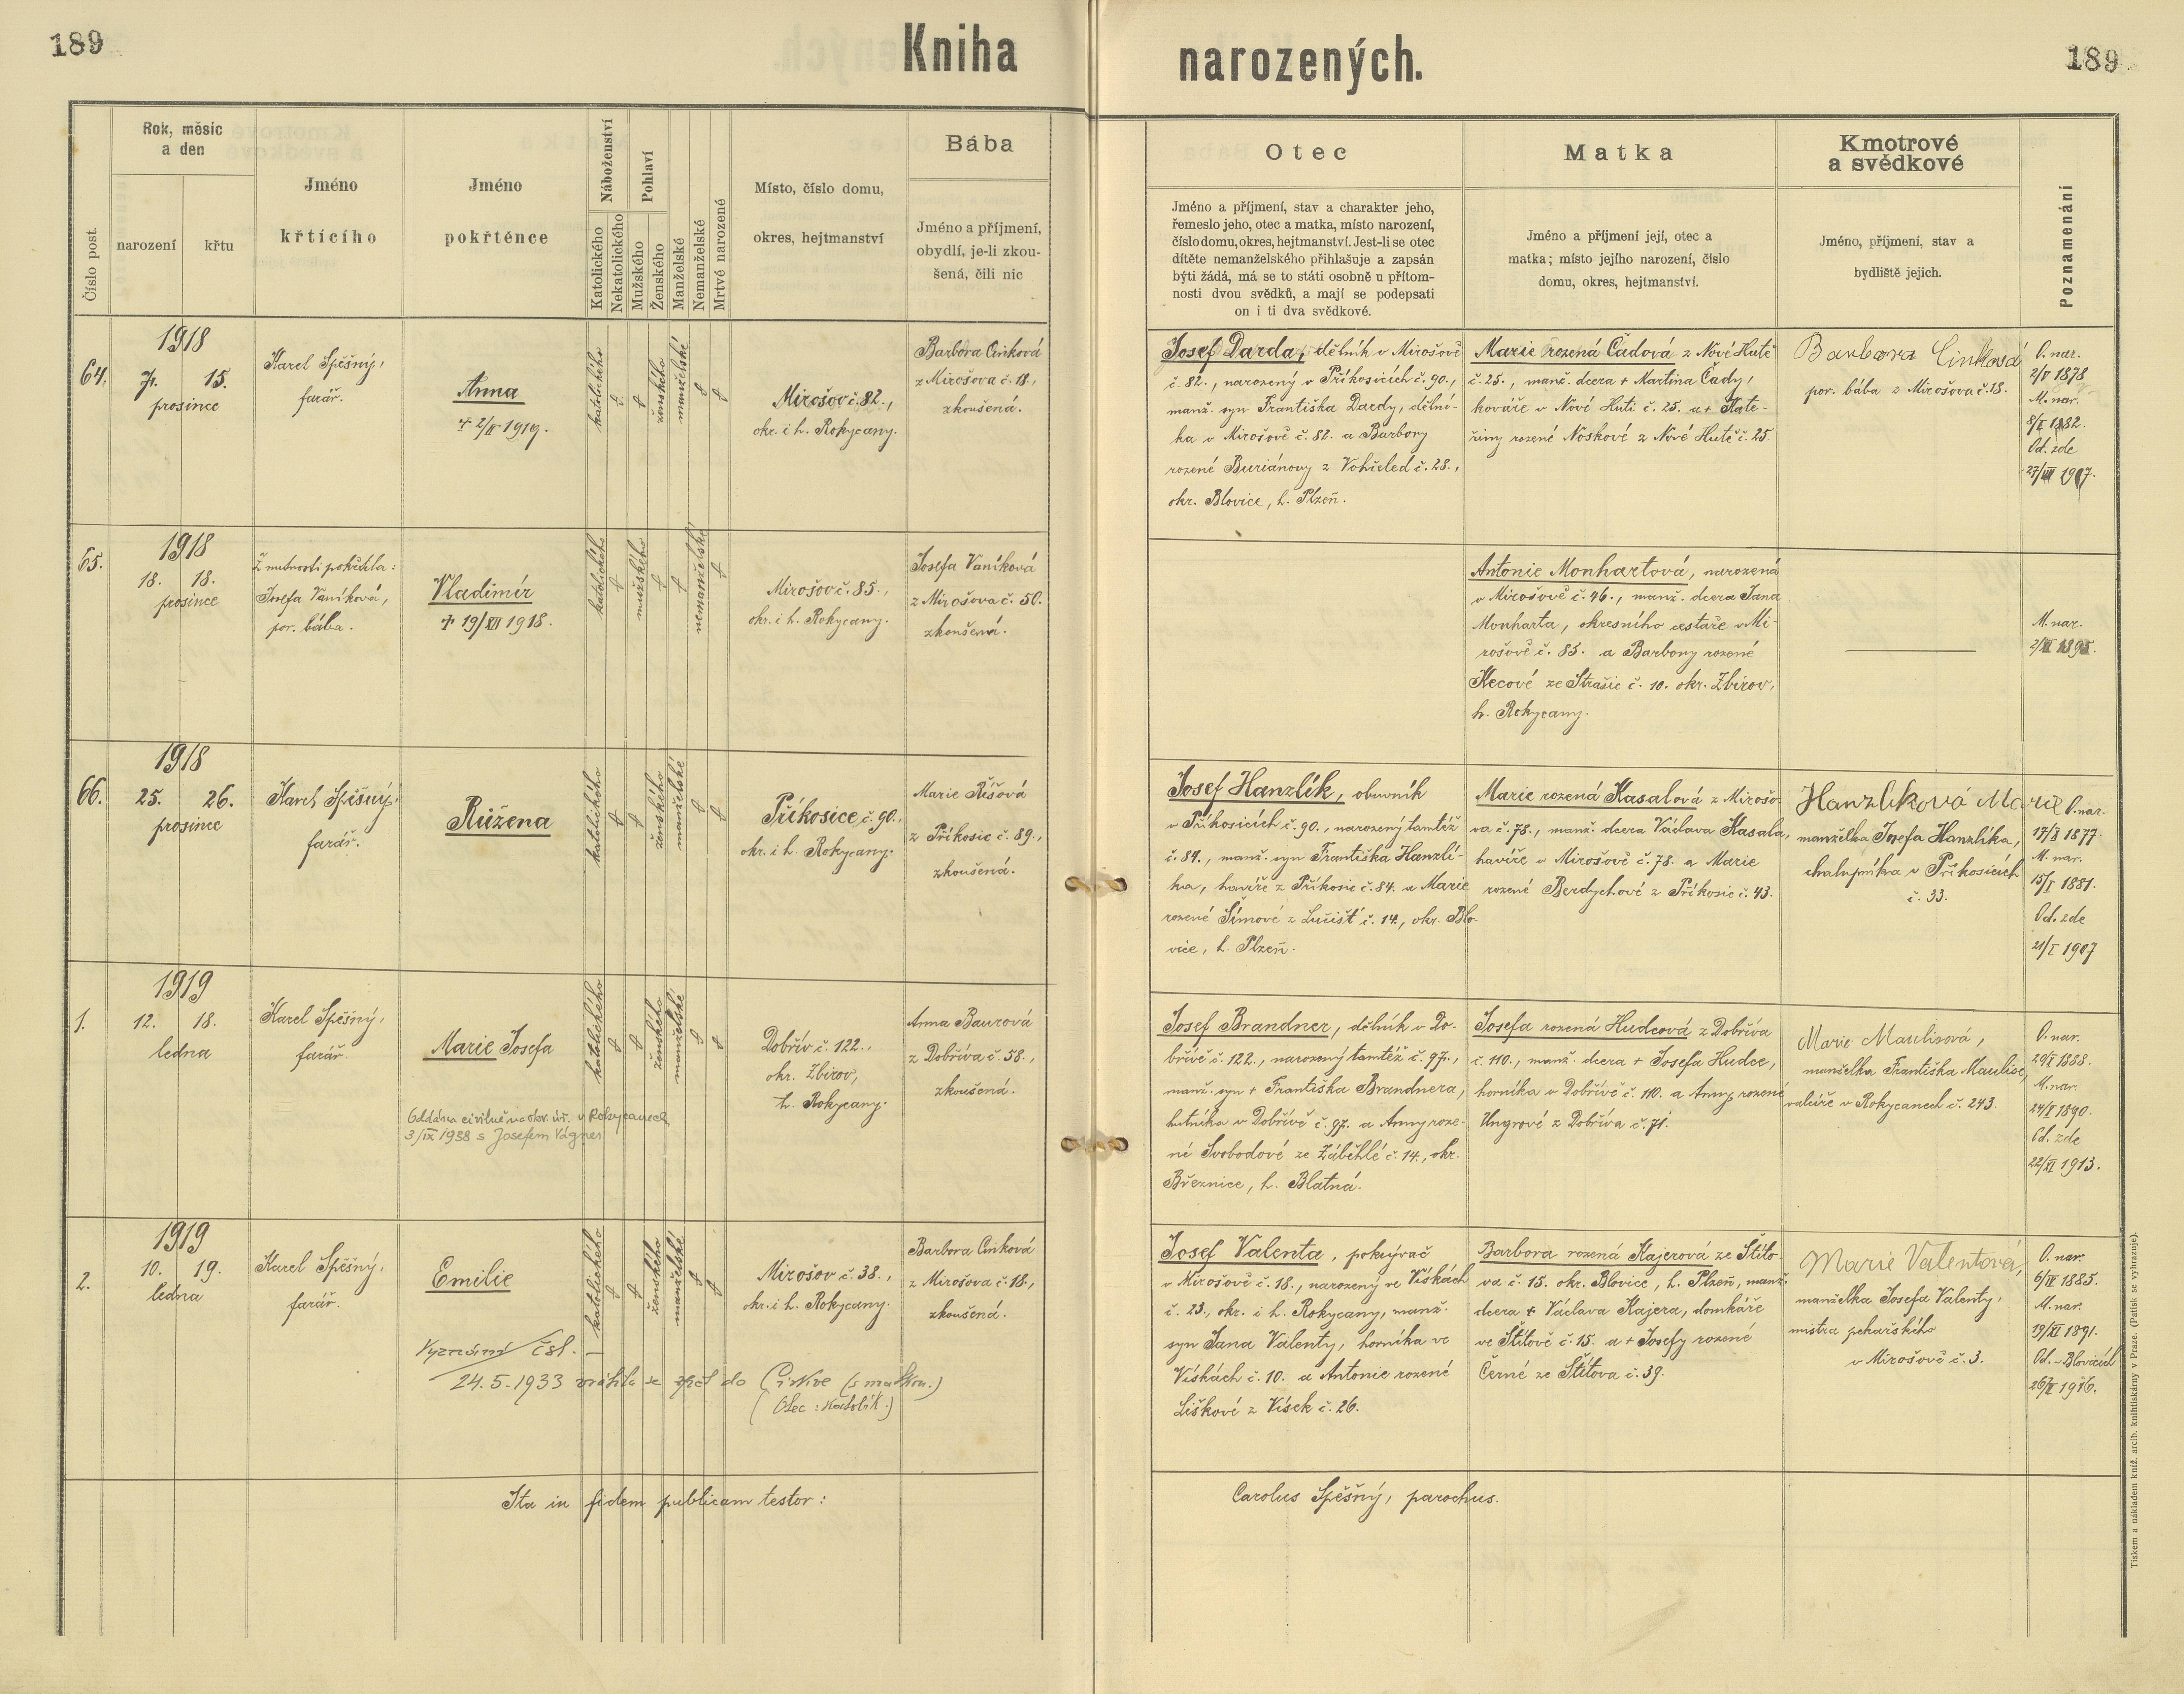 189
Kniha
narozených.
189
Číslo post.
Rok, měsíc
a den
narození
křtu
Jméno
křtícího
Jméno
pokřtěnce
Náboženství
Katolického
Nekatolického
Pohlaví
Mužského
Ženského
Manželské
Nemanželské
Mrtvé narozené
Místo, číslo domu,
okres, hejtmanství
Bába
Jméno a příjmení,
obydlí, je-li zkou-
šená, čili nic
Otec
Jméno a příjmení, stav a charakter jeho,
řemeslo jeho, otec a matka, místo narození,
číslo domu, okres, hejtmanství. Jest-li se otec
dítěte nemanželského přihlašuje a zapsán
býti žádá, má se to státi osobně u přítom-
nosti dvou svědků, a mají se podepsati
on i ti dva svědkové.
Matka
Jméno a příjmení její, otec a
matka; místo jejího narození, číslo
domu, okres, hejtmanství.
Kmotrové
a svědkové
Jméno, příjmení, stav a
bydliště jejich.
Poznamenání
64.
1918
7. 15.
prosince
Karel Spěšný,
farář.
Anna
+ 2/II 1919.
katolického
ženského
manželské
Mirošov č. 82.,
okr. i h. Rokycany.
Barbora Cinková
z Mirošova č. 18.,
zkoušená.
Josef Darda, dělník v Mirošově
č. 82., narozený v Příkosicích č. 90.,
manž. syn Františka Dardy, dělní-
ka v Mirošově č. 82. a Barbory
rozené Buriánovy z Vohřeled č. 28.,
okr. Blovice, h. Plzeň.
Marie rozená Čadová z Nové Hutě
č. 25., manž. dcera + Martina Čady,
kováře v Nové Huti č. 25. a + Kate-
řiny rozené Noskové z Nové Hutě č. 25.
Barbora Cinková
por. bába z Mirošova č. 18.
O. nar.
2/V 1878
M. nar.
8/X 1882.
Od. zde
27/VII 1907.
65.
1918
18. 18.
prosince
Z nutnosti pokřtila:
Josefa Vaníková,
por. bába.
Vladimír
+ 19/XII 1918.
katolického
mužského
nemanželské
Mirošov č. 85.,
okr. i h. Rokycany.
Josefa Vaníková
z Mirošova č. 50.
zkoušená.
Antonie Monhartová, narozená
v Mirošově č. 46., manž. dcera Jana
Monharta, okresního cestáře v Mi-
rošově č. 85. a Barbory rozené
Kecové ze Strašic č. 10. okr. Zbirov,
h. Rokycany.
M. nar.
2/XI 1895.
66.
1918
25. 26.
prosince
Karel Spěšný,
farář.
Růžena
katolického
ženského
manželské
Příkosice, č. 90.,
okr. i h. Rokycany.
Marie Říšová
z Příkosic č. 89.,
zkoušená.
Josef Hanzlík, obuvník
v Příkosicích č. 90., narozený tamtéž
č. 84., manž. syn Františka Hanzlí-
ka, havíře z Příkosic č. 84. a Marie
rozené Šímové z Lučišť č. 14., okr. Blo-
vice, h. Plzeň.
Marie rozená Kasalová z Mirošo-
va č. 78., manž. dcera Václava Kasala,
havíře v Mirošově č. 78. a Marie
rozené Berdychové z Příkosic č. 43.
Hanzlíková Marie
manželka Josefa Hanzlíka,
chalupníka v Příkosicích
č. 33.
O. nar.
17/X 1877.
M. nar.
15/I 1881.
Od. zde
21/I 1907
1.
1919
12. 18.
ledna
Karel Spěšný,
farář.
Marie Josefa
Oddána civilně na okr. úř. v Rokycanech
3/IX 1938 s Josefem Vágner
katolického
ženského
manželské
Dobřív č. 122.,
okr. Zbirov,
h. Rokycany.
Anna Baurová
z Dobříva č. 58.,
zkoušená.
Josef Brandner, dělník v Do-
břívě č. 122., narozený tamtéž č. 97.,
manž. syn + Františka Brandnera,
hutníka v Dobřívě č. 97. a Anny roze-
né Svobodové ze Záběhlé č. 14., okr.
Březnice, h. Blatná.
Josefa rozená Hudcová z Dobříva
č. 110., manž. dcera + Josefa Hudce,
horníka v Dobřívě č. 110. a Anny rozené
Ungrové z Dobříva č. 71.
Marie Maulisová,
manželka Františka Maulise,
valcíře v Rokycanech č. 243.
O. nar.
29/X 1888.
M. nar.
24/X 1890.
Od. zde
22/XI 1913.
2.
1919
10. 19.
ledna
Karel Spěšný,
farář.
Emilie
Vyznání čsl. —
24.5.1933 vrátila se zpět do Církve (s matkou.)
(Otec: katolík.)
katolického
ženského
manželské
Mirošov č. 38.,
okr. i h. Rokycany.
Barbora Cinková
z Mirošova č. 18.,
zkoušená.
Josef Valenta, pokrývač
v Mirošově č. 18., narozený ve Vískách
č. 23., okr. i h. Rokycany, manž.
syn Jana Valenty, horníka ve
Vískách č. 10. a Antonie rozené
Liškové z Vísek č. 26.
Barbora rozená Kajerová ze Štíto-
va č. 15. okr. Blovice, h. Plzeň, manž.
dcera + Václava Kajera, domkáře
ve Štítově č. 15. a + Josefy rozené
Černé ze Štítova č. 39.
Marie Valentová,
manželka Josefa Valenty,
mistra pekařského
v Mirošově č. 3.
O. nar.
6/IV 1885.
M. nar.
19/XI 1891.
Od. v Blovicích
26/X 1916.
Ita in fidem publicam testor:
Carolus Spěšný, parochus.
Tiskem a nákladem kníž. arcib. knihtiskárny v Praze. (Patisk se vyhrazuje).